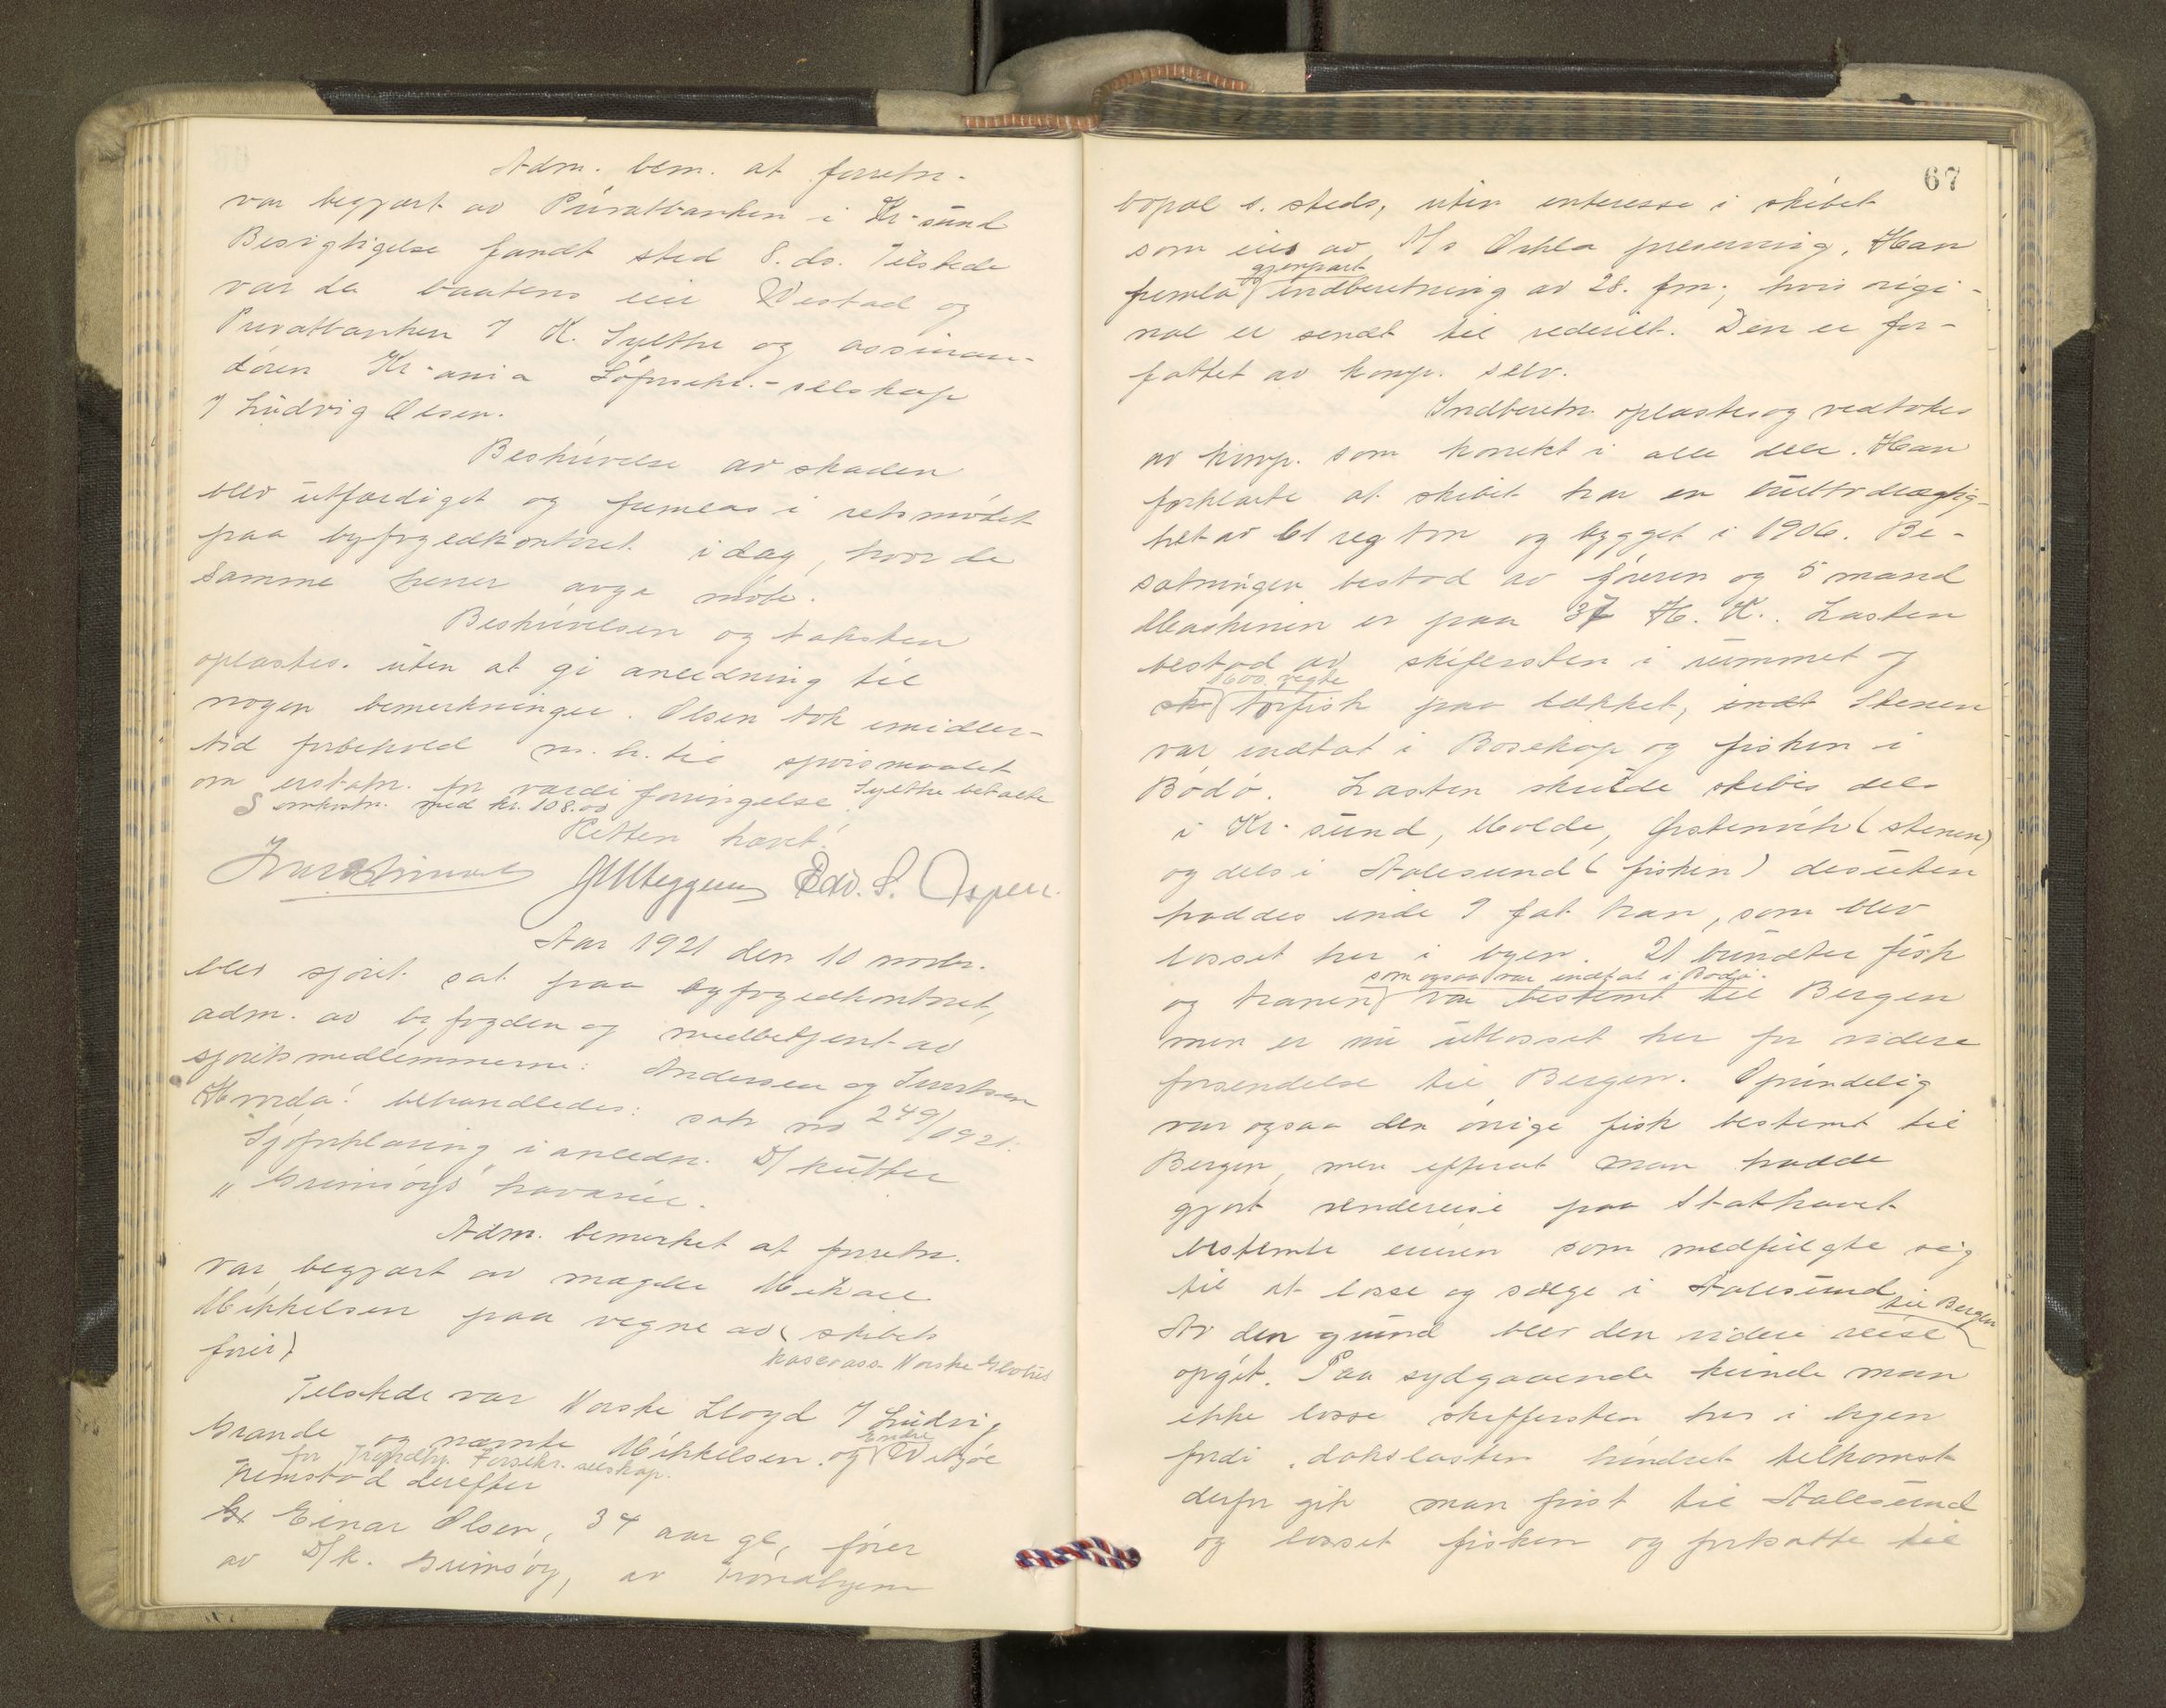 Adm. bem. at forretn.
var begjært av Privatbanken i Kr-sund
Besigtigelse fandt sted 8. ds. Tilstede
var da baatens eier Vestad og
Privatbanken v/ K. Sylthe og assuran-
døren Kr-ania Søforsikr.-selskap
v/ Ludvig Olsen.
Beskrivelse av skaden
blev utfærdiget og fremlas i retsmøtet
paa byfogedkontoret idag, hvor de
samme herrer avga møte.
Beskrivelsen og taksten
oplæstes. uten at gi anledning til
nogen bemerkninger. Olsen tok imidler-
tid forbehold m. h. til spørsmaalet
om erstatn. for værdiforringelse. Sylthe betalte
omkostn. med kr. 108.00
Retten hævet.
Edv. S. Aspen.
Aar 1921 den 10 novbr.
blev sjøret sat paa byfogedkontoret,
adm. av byfogden og medbetjent av
sjøretsmedlemmerne: Andersen og Ivertsen
behandledes: sak no 249/1921.
Sjøforklaring i anledn. D/ kutter
"Grimsøys" havari.
Adm. bemerket at forretn.
var begjært av mægler Mikael
Mikkelsen paa vegne av (skibets
fører)
kaskoass. Norske Globus
Tilstede var Norske Lloyd v/ Ludvig
Grande og nævnte Mikkelsen. og Endre Vibjøe
for Trondhj. Forsikr. selskap.
Fremstod derefter
Einar Olsen, 34 aar gl, fører
av D/k. Grimsøy, av Trondhjem
67
bopæl s. steds, uten interesse i skibet
som eies av A/s Orkla preserving. Han
gjenpart
fremla indberetning av 28. fm., hvis origi-
nal er sendt til rederiet. Den er for-
fattet av komp. selv.
Indberetn. oplæstes og vedtokes
av komp. som korrekt i alle dele. Han
forklarte at skibet har en bruttodrægtig-
het av 61 reg ton og bygget i 1906. Be-
sætningen bestod av føreren og 5 mand
Maskinen er paa 37 H. K.. Lasten
bestod av skifersten i rummet og
1600 vegte
tørfisk paa dækket, Stenen
var indtat i Bosekop og fisken i
Bodø. Lasten skulde skibes dels
i Kr-sund, Molde, Ørstenvik (stenen)
og dels i Aalesund (fisken) desuten
haddes inde 9 fat tran, som blev
losset her i byen. 21 bundter fisk
som ogsaa var indtat i Bodø.
og tranen var bestemt til Bergen
men er nu utlosset her for videre
forsendelse til Bergen. Oprindelig
var ogsaa den øvrige fisk bestemt til
Bergen, men efterat man hadde
gjort vendereise paa Stathavet
bestemte eieren som medfulgte sig
til at losse og sælge i Aalesund
til Bergen
Av den grund blev den videre reise
opgit. Paa sydgaaende kunde man
ikke losse skiffersten her i byen
fordi dækslasten hindret tilkomst
derfor gik man først til Aalesund
og losset fisken og fortsatte til